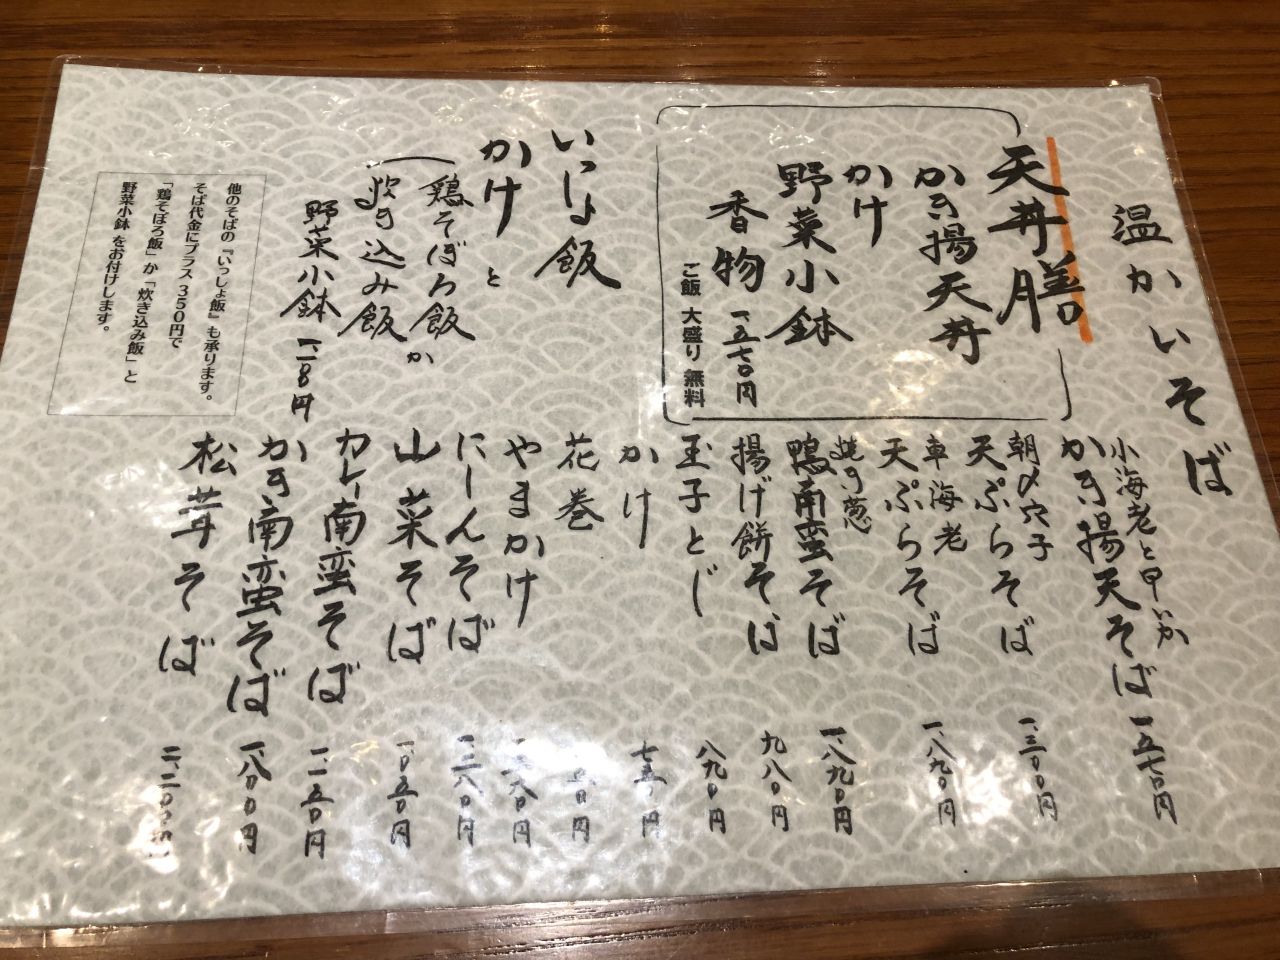 温かいそば
天丼膳
かき揚天丼
かけ
野菜小鉢
香物 一、五七〇円
ご飯 大盛り 無料
いっしょ飯
かけと
鶏そぼろ飯か
炊き込み飯
野菜小鉢
他のそばの『いっしょ飯』も承ります。
そば代金にプラス350円で
「鶏そぼろ飯」か「炊き込み飯」と
野菜小鉢 をお付けします。
小海老と甲いか
かき揚天そば 一、五七〇円
朝〆穴子
天ぷらそば 一、三〇〇円
車海老
天ぷらそば 一、八九〇円
焼き葱
鴨南蛮そば 一、八九〇円
揚げ餅そば 九八〇円
玉子とじ 八九〇円
かけ
花巻
やまかけ
にしんそば 一、三八〇円
山菜そば 一、〇五〇円
カレー南蛮そば 一、一五〇円
かき南蛮そば 一、八〇〇円
松茸そば